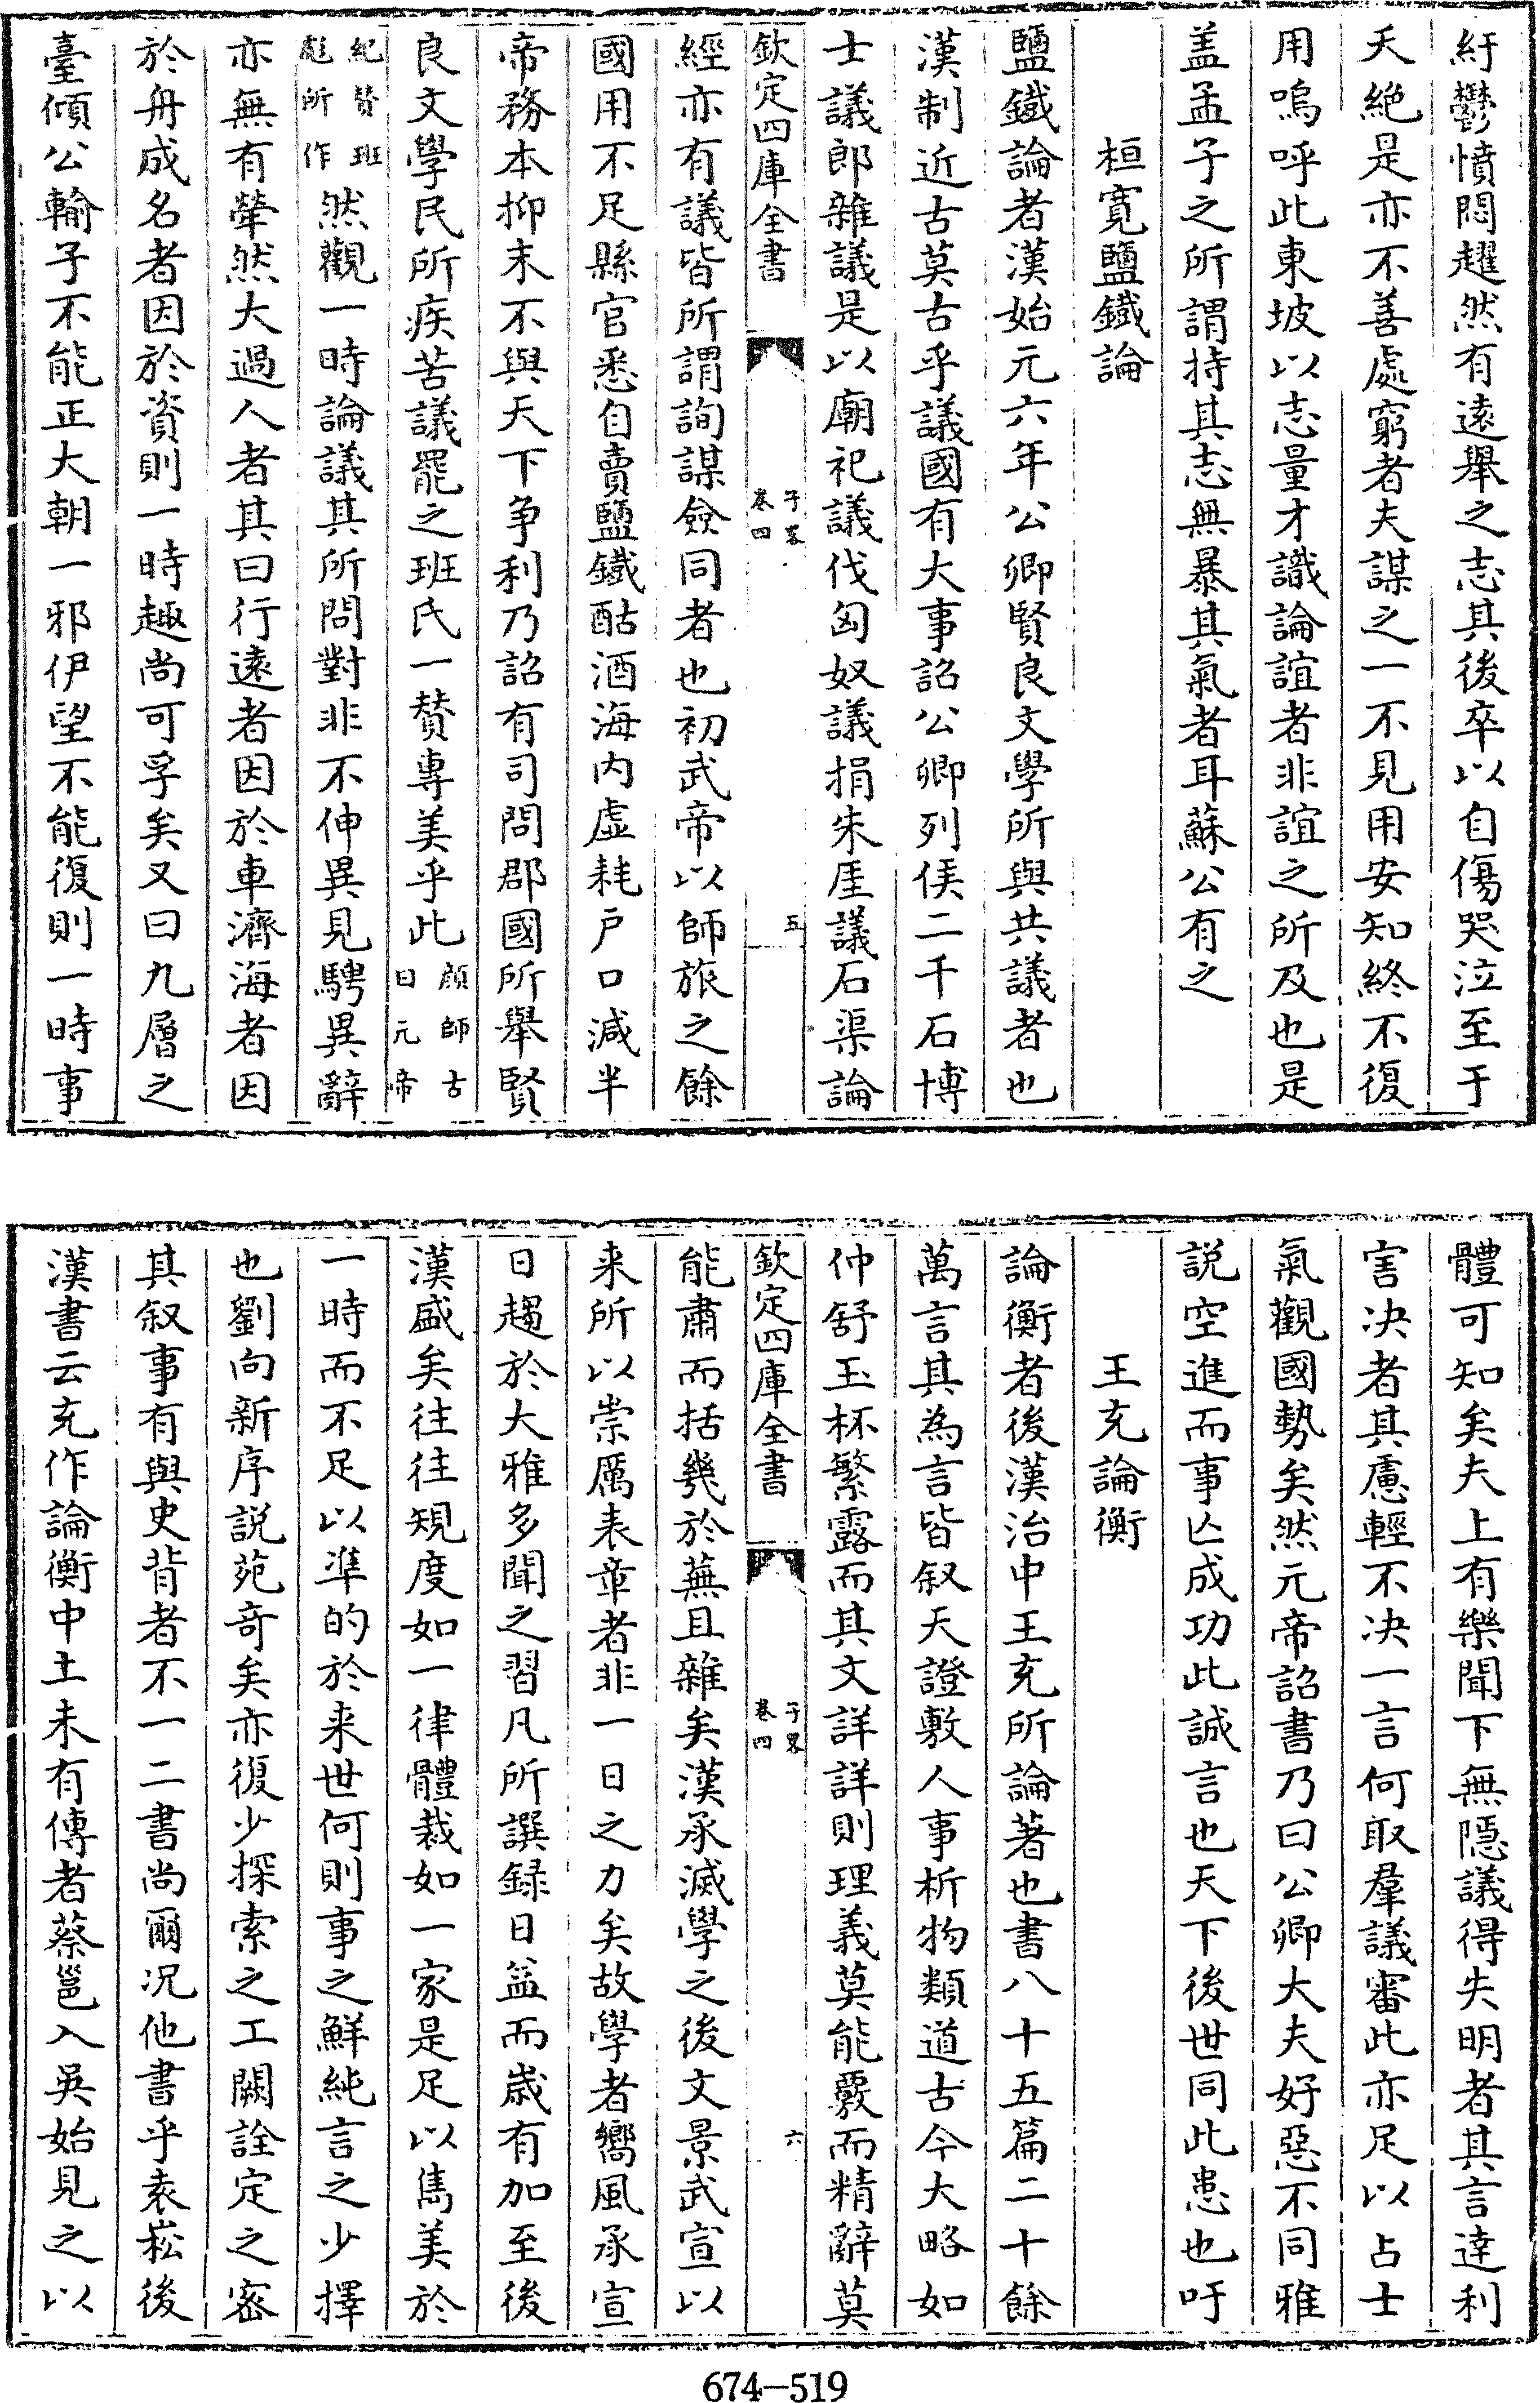 紆鬱憤悶趯然有遠舉之志其後卒以自傷哭泣至于
夭絶是亦不善處窮者夫謀之一不見用安知終不復
用嗚呼此東坡以志量才識論誼者非誼之所及也是
盖孟子之所謂持其志無暴其氣者耳蘇公有之
桓寛鹽鐵論
鹽鐵論者漢始元六年公卿賢良文學所與共議者也
漢制近古莫古乎議國有大事詔公卿列侯二千石博
士議郎雜議是以廟祀議伐匈奴議捐朱厓議石渠論
欽定四庫全書
子畧
卷四
五
經亦有議皆所謂詢謀僉同者也初武帝以師旅之餘
國用不足縣官悉自賣鹽鐵酤酒海内虚耗户口減半
帝務本抑末不與天下争利乃詔有司問郡國所舉賢
良文學民所疾苦議罷之班氏一賛專美乎此顔師古曰元帝
紀賛班彪所作然觀一時論議其所問對非不伸異見騁異辭
亦無有犖然大過人者其曰行遠者因於車濟海者因
於舟成名者因於資則一時趣尚可孚矣又曰九層之
臺傾公輸子不能正大朝一邪伊望不能復則一時事
體可知矣夫上有樂聞下無隠議得失明者其言達利
害决者其慮輕不决一言何取羣議審此亦足以占士
氣觀國勢矣然元帝詔書乃曰公卿大夫好惡不同雅
説空進而事亾成功此誠言也天下後世同此患也吁
王充論衡
論衡者後漢治中王充所論著也書八十五篇二十餘
萬言其為言皆叙天證敷人事析物類道古今大略如
仲舒玉杯繁露而其文詳詳則理義莫能覈而精辭莫
欽定四庫全書
子畧
卷四
六
能肅而括幾於蕪且雜矣漢承滅學之後文景武宣以
来所以崇厲表章者非一日之力矣故學者嚮風承宣
日趨於大雅多聞之習凡所譔録日益而嵗有加至後
漢盛矣往往規度如一律體裁如一家是足以雋美於
一時而不足以凖的於来世何則事之鮮純言之少擇
也劉向新序説苑奇矣亦復少探索之工闕詮定之密
其叙事有與史背者不一二書尚爾况他書乎袁崧後
漢書云充作論衡中土未有傳者蔡邕入吳始見之以
674—519